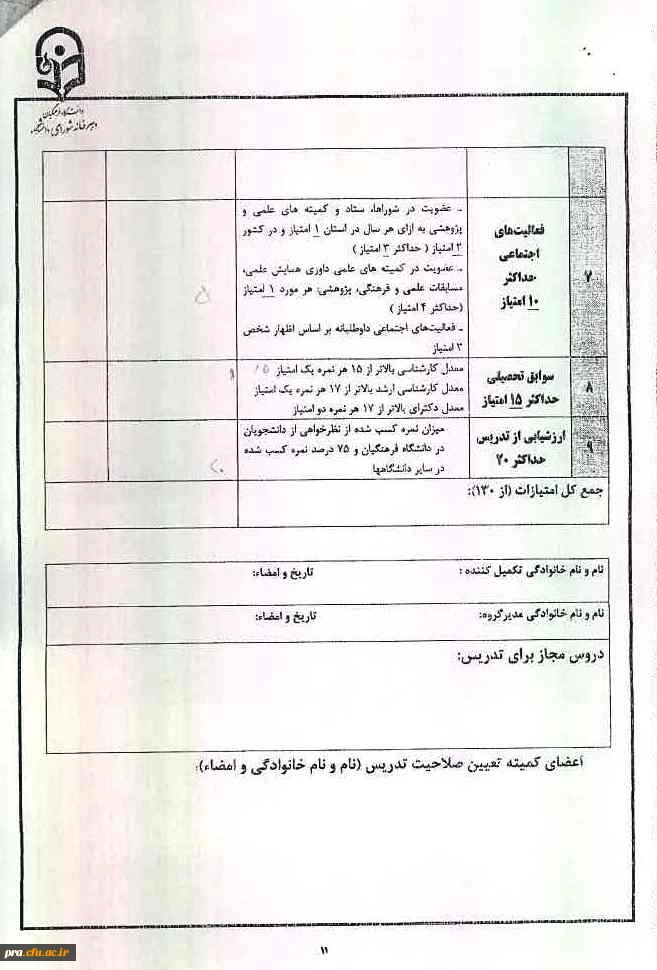 دانشگاه فرهنگیان
دبیرخانه شورای دانشگاه
۷
فعالیت‌های
اجتماعی
حداکثر
۱۰ امتیاز
ـ عضویت در شوراها، ستاد و کمیته های علمی و
پژوهشی به ازای هر سال در استان ۱ امتیاز و در کشور
۲ امتیاز ( حداکثر ۳ امتیاز )
ـ عضویت در کمیته های علمی داوری همایش علمی،
مسابقات علمی و فرهنگی، پژوهشی: هر مورد ۱ امتیاز
(حداکثر ۴ امتیاز )
ـ فعالیت‌های اجتماعی داوطلبانه بر اساس اظهار شخص
۳ امتیاز
۵
۸
سوابق تحصیلی
حداکثر ۱۵ امتیاز
معدل کارشناسی بالاتر از ۱۵ هر نمره یک امتیاز
معدل کارشناسی ارشد بالاتر از ۱۷ هر نمره یک امتیاز
معدل دکترای بالاتر از ۱۷ هر نمره دو امتیاز
۹
ارزشیابی از تدریس
حداکثر ۲۰
میزان نمره کسب شده از نظرخواهی از دانشجویان
در دانشگاه فرهنگیان و ۷۵ درصد نمره کسب شده
در سایر دانشگاهها
۲۰
جمع کل امتیازات (از ۱۳۰):
نام و نام خانوادگی تکمیل کننده : تاریخ و امضاء:
نام و نام خانوادگی مدیرگروه: تاریخ و امضاء:
دروس مجاز برای تدریس:
اعضای کمیته تعیین صلاحیت تدریس (نام و نام خانوادگی و امضاء):
۱۱
pra.cfu.ac.ir